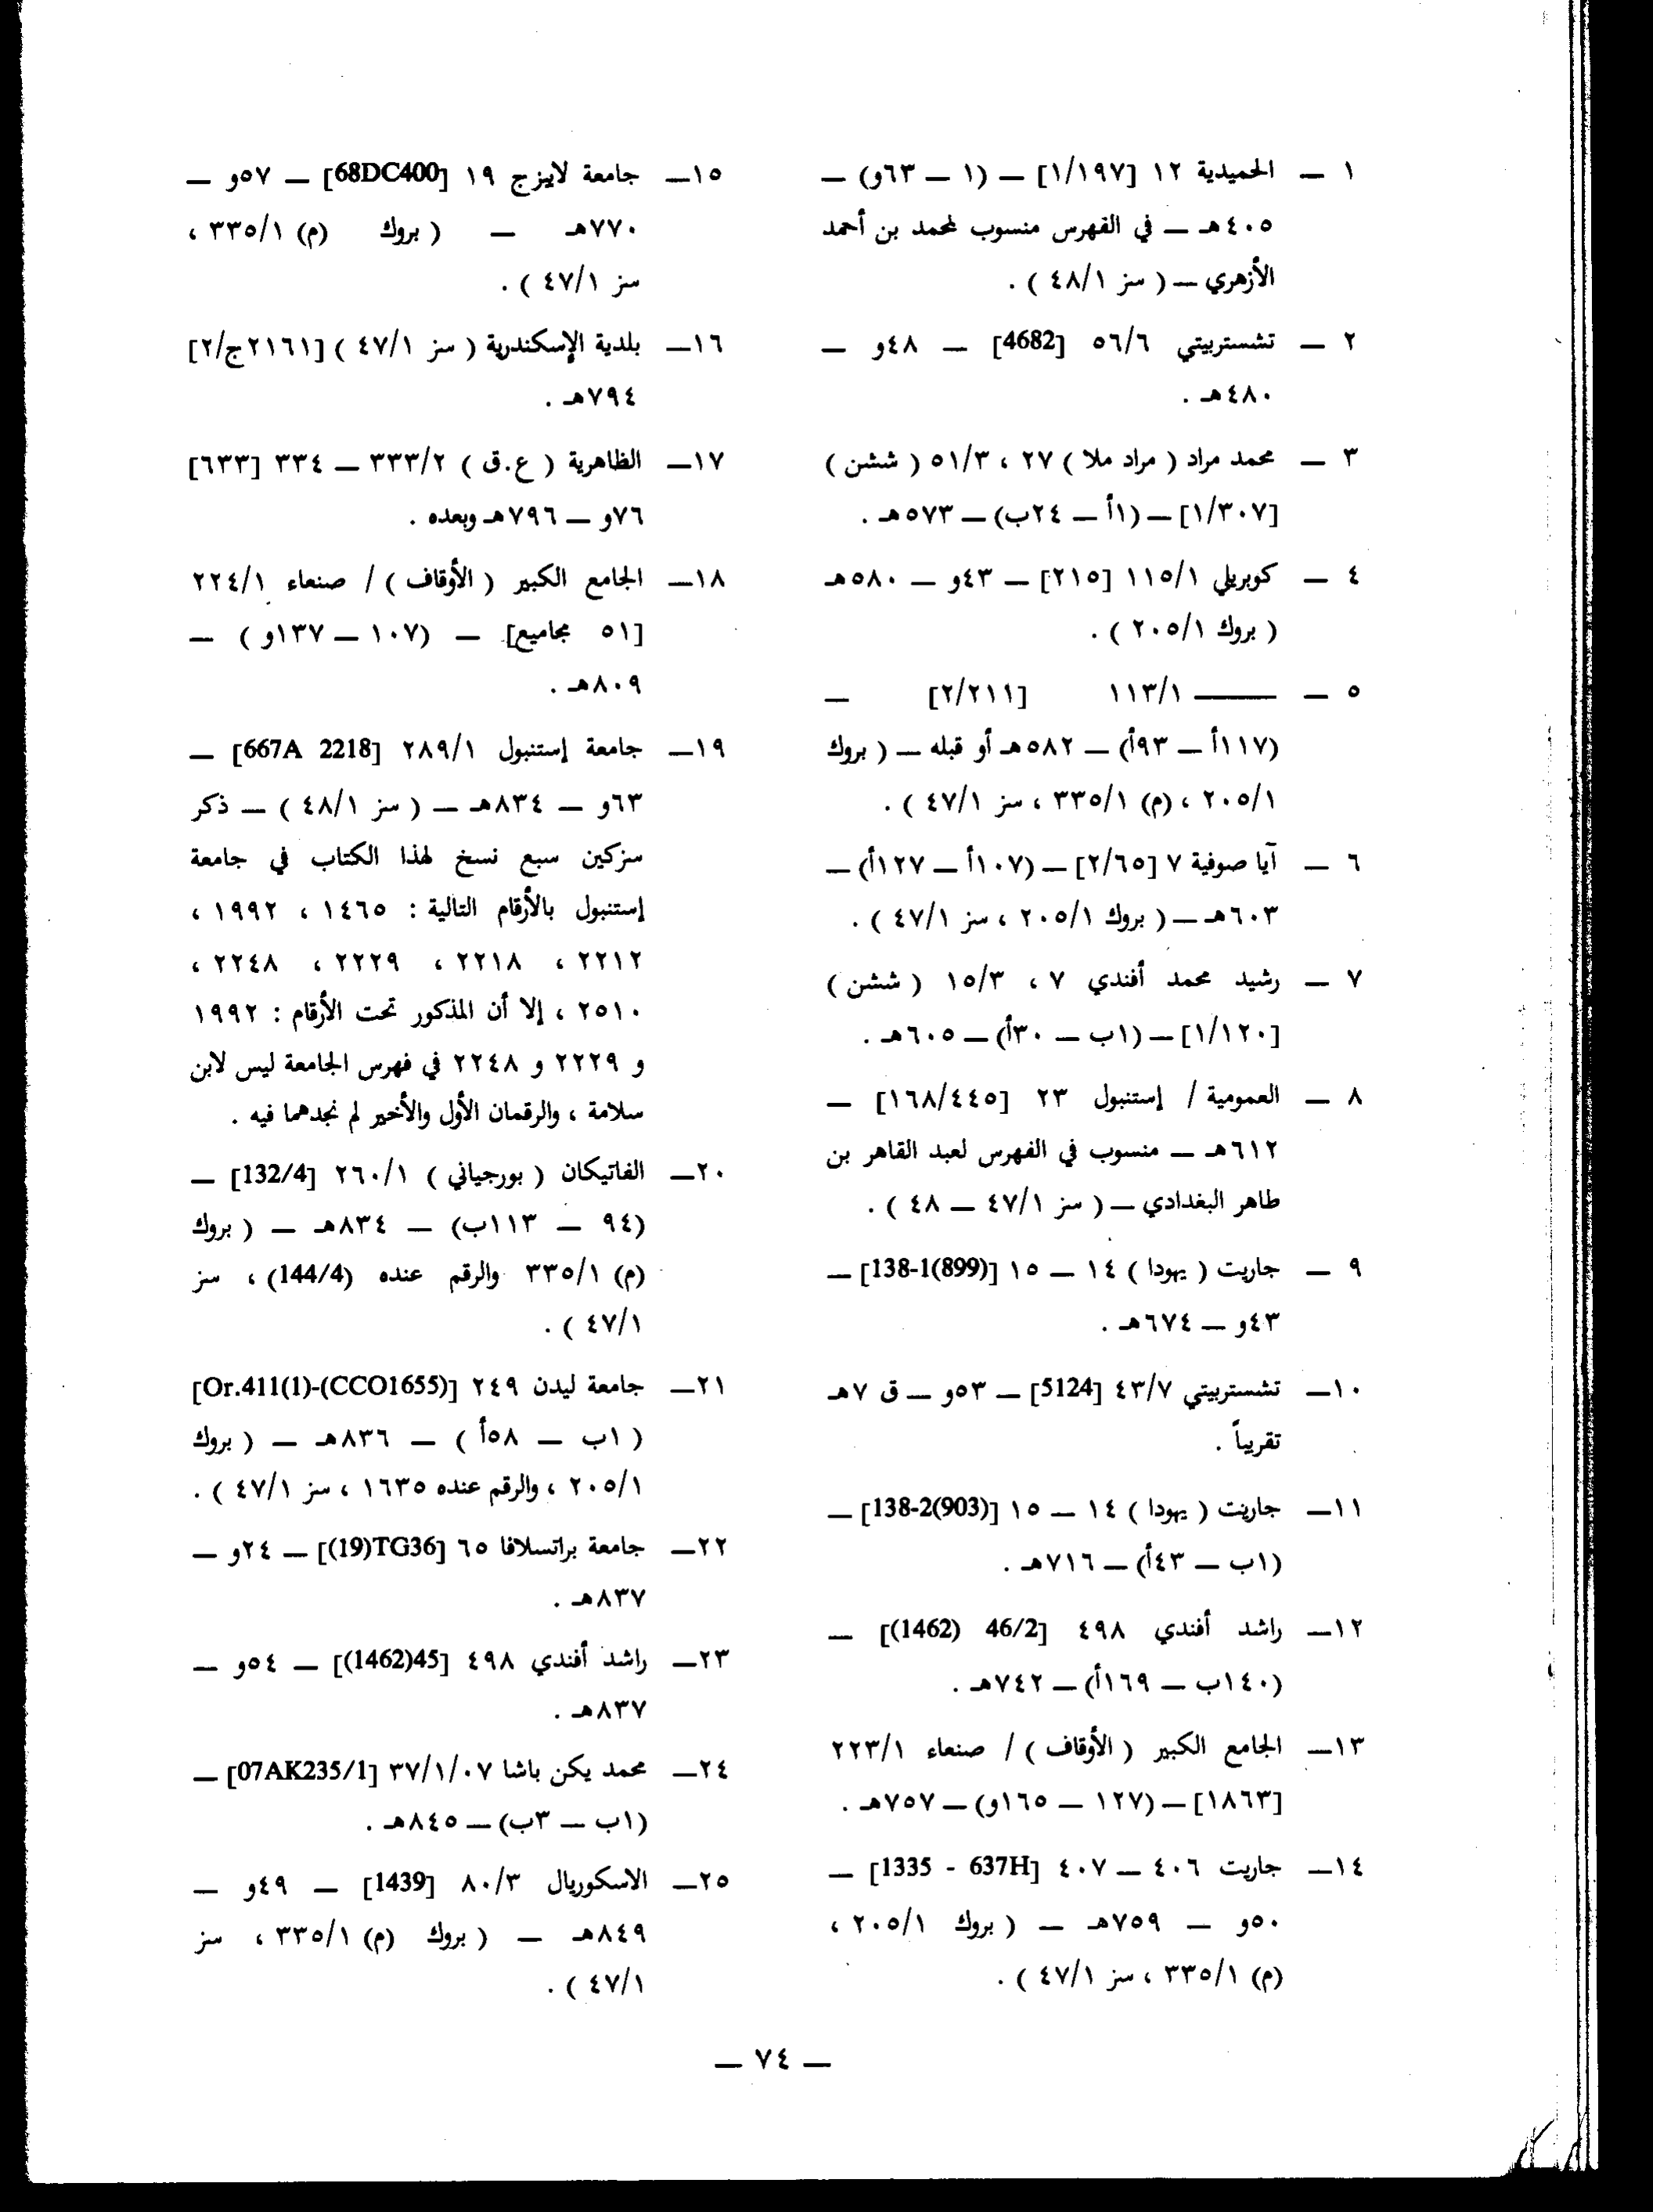 ١ — الحميدية ١٢ [١/١٩٧] — (١ — ٦٣و) —
٤٠٥هـ — في الفهرس منسوب لمحمد بن أحمد
الأزهري — ( سز ٤٨/١ ) .
٢ — تشستربيتي ٥٦/٦ [4682] — ٤٨و —
٤٨٠هـ .
٣ — محمد مراد ( مراد ملا ) ٢٧ ، ٥١/٣ ( ششن )
[١/٣٠٧] — (١أ — ٢٤ب) — ٥٧٣هـ .
٤ — كوبريلي ١١٥/١ [٢١٥] — ٤٣و — ٥٨٠هـ
( بروك ٢٠٥/١ ) .
٥ — ——— ١١٣/١ [٢/٢١١] —
(١١٧أ — ٩٣أ) — ٥٨٢هـ أو قبله — ( بروك
٢٠٥/١ ، (م) ٣٣٥/١ ، سز ٤٧/١ ) .
٦ — آيا صوفية ٧ [٢/٦٥] — (١٠٧أ — ١٢٧أ) —
٦٠٣هـ — ( بروك ٢٠٥/١ ، سز ٤٧/١ ) .
٧ — رشيد محمد أفندي ٧ ، ١٥/٣ ( ششن )
[١/١٢٠] — (١ب — ٣٠أ) — ٦٠٥هـ .
٨ — العمومية / إستنبول ٢٣ [١٦٨/٤٤٥] —
٦١٢هـ — منسوب في الفهرس لعبد القاهر بن
طاهر البغدادي — ( سز ٤٧/١ — ٤٨ ) .
٩ — جاريت ( يهودا ) ١٤ — ١٥ [138-1(899)] —
٤٣و — ٦٧٤هـ .
١٠— تشستربيتي ٤٣/٧ [5124] — ٥٣و — ق ٧هـ
تقريباً .
١١— جاريت ( يهودا ) ١٤ — ١٥ [138-2(903)] —
(١ب — ٤٣أ) — ٧١٦هـ .
١٢— راشد أفندي ٤٩٨ [46/2 (1462)] —
(١٤٠ب — ١٦٩أ) — ٧٤٢هـ .
١٣— الجامع الكبير ( الأوقاف ) / صنعاء ٢٢٣/١
[١٨٦٣] — (١٢٧ — ١٦٥و) — ٧٥٧هـ .
١٤— جاريت ٤٠٦ — ٤٠٧ [1335 - 637H] —
٥٠و — ٧٥٩هـ — ( بروك ٢٠٥/١ ،
(م) ٣٣٥/١ ، سز ٤٧/١ ) .
١٥— جامعة لايبزج ١٩ [68DC400] — ٥٧و —
٧٧٠هـ — ( بروك (م) ٣٣٥/١ ،
سز ٤٧/١ ) .
١٦— بلدية الإسكندرية ( سز ٤٧/١ ) [٢١٦١ج/٢]
٧٩٤هـ .
١٧— الظاهرية ( ع.ق ) ٣٣٣/٢ — ٣٣٤ [٦٣٣]
٧٦و — ٧٩٦هـ وبعده .
١٨— الجامع الكبير ( الأوقاف ) / صنعاء ٢٢٤/١
[٥١ مجاميع] — (١٠٧ — ١٣٧و ) —
٨٠٩هـ .
١٩— جامعة إستنبول ٢٨٩/١ [667A 2218] —
٦٣و — ٨٣٤هـ — ( سز ٤٨/١ ) — ذكر
سزكين سبع نسخ لهذا الكتاب في جامعة
إستنبول بالأرقام التالية : ١٤٦٥ ، ١٩٩٢ ،
٢٢١٢ ، ٢٢١٨ ، ٢٢٢٩ ، ٢٢٤٨ ،
٢٥١٠ ، إلا أن المذكور تحت الأرقام : ١٩٩٢
و ٢٢٢٩ و ٢٢٤٨ في فهرس الجامعة ليس لابن
سلامة ، والرقمان الأول والأخير لم نجدهما فيه .
٢٠— الفاتيكان ( بورجياني ) ٢٦٠/١ [132/4] —
(٩٤ — ١١٣ب) — ٨٣٤هـ — ( بروك
(م) ٣٣٥/١ والرقم عنده (144/4) ، سز
٤٧/١ ) .
٢١— جامعة ليدن ٢٤٩ [Or.411(1)-(CCO1655)]
( ١ب — ٥٨أ ) — ٨٣٦هـ — ( بروك
٢٠٥/١ ، والرقم عنده ١٦٣٥ ، سز ٤٧/١ ) .
٢٢— جامعة براتسلافا ٦٥ [(19)TG36] — ٢٤و —
٨٣٧هـ .
٢٣— راشد أفندي ٤٩٨ [(1462)45] — ٥٤و —
٨٣٧هـ .
٢٤— محمد يكن باشا ٣٧/١/٠٧ [07AK235/1] —
(١ب — ٣ب) — ٨٤٥هـ .
٢٥— الاسكوريال ٨٠/٣ [1439] — ٤٩و —
٨٤٩هـ — ( بروك (م) ٣٣٥/١ ، سز
٤٧/١ ) .
— ٧٤ —